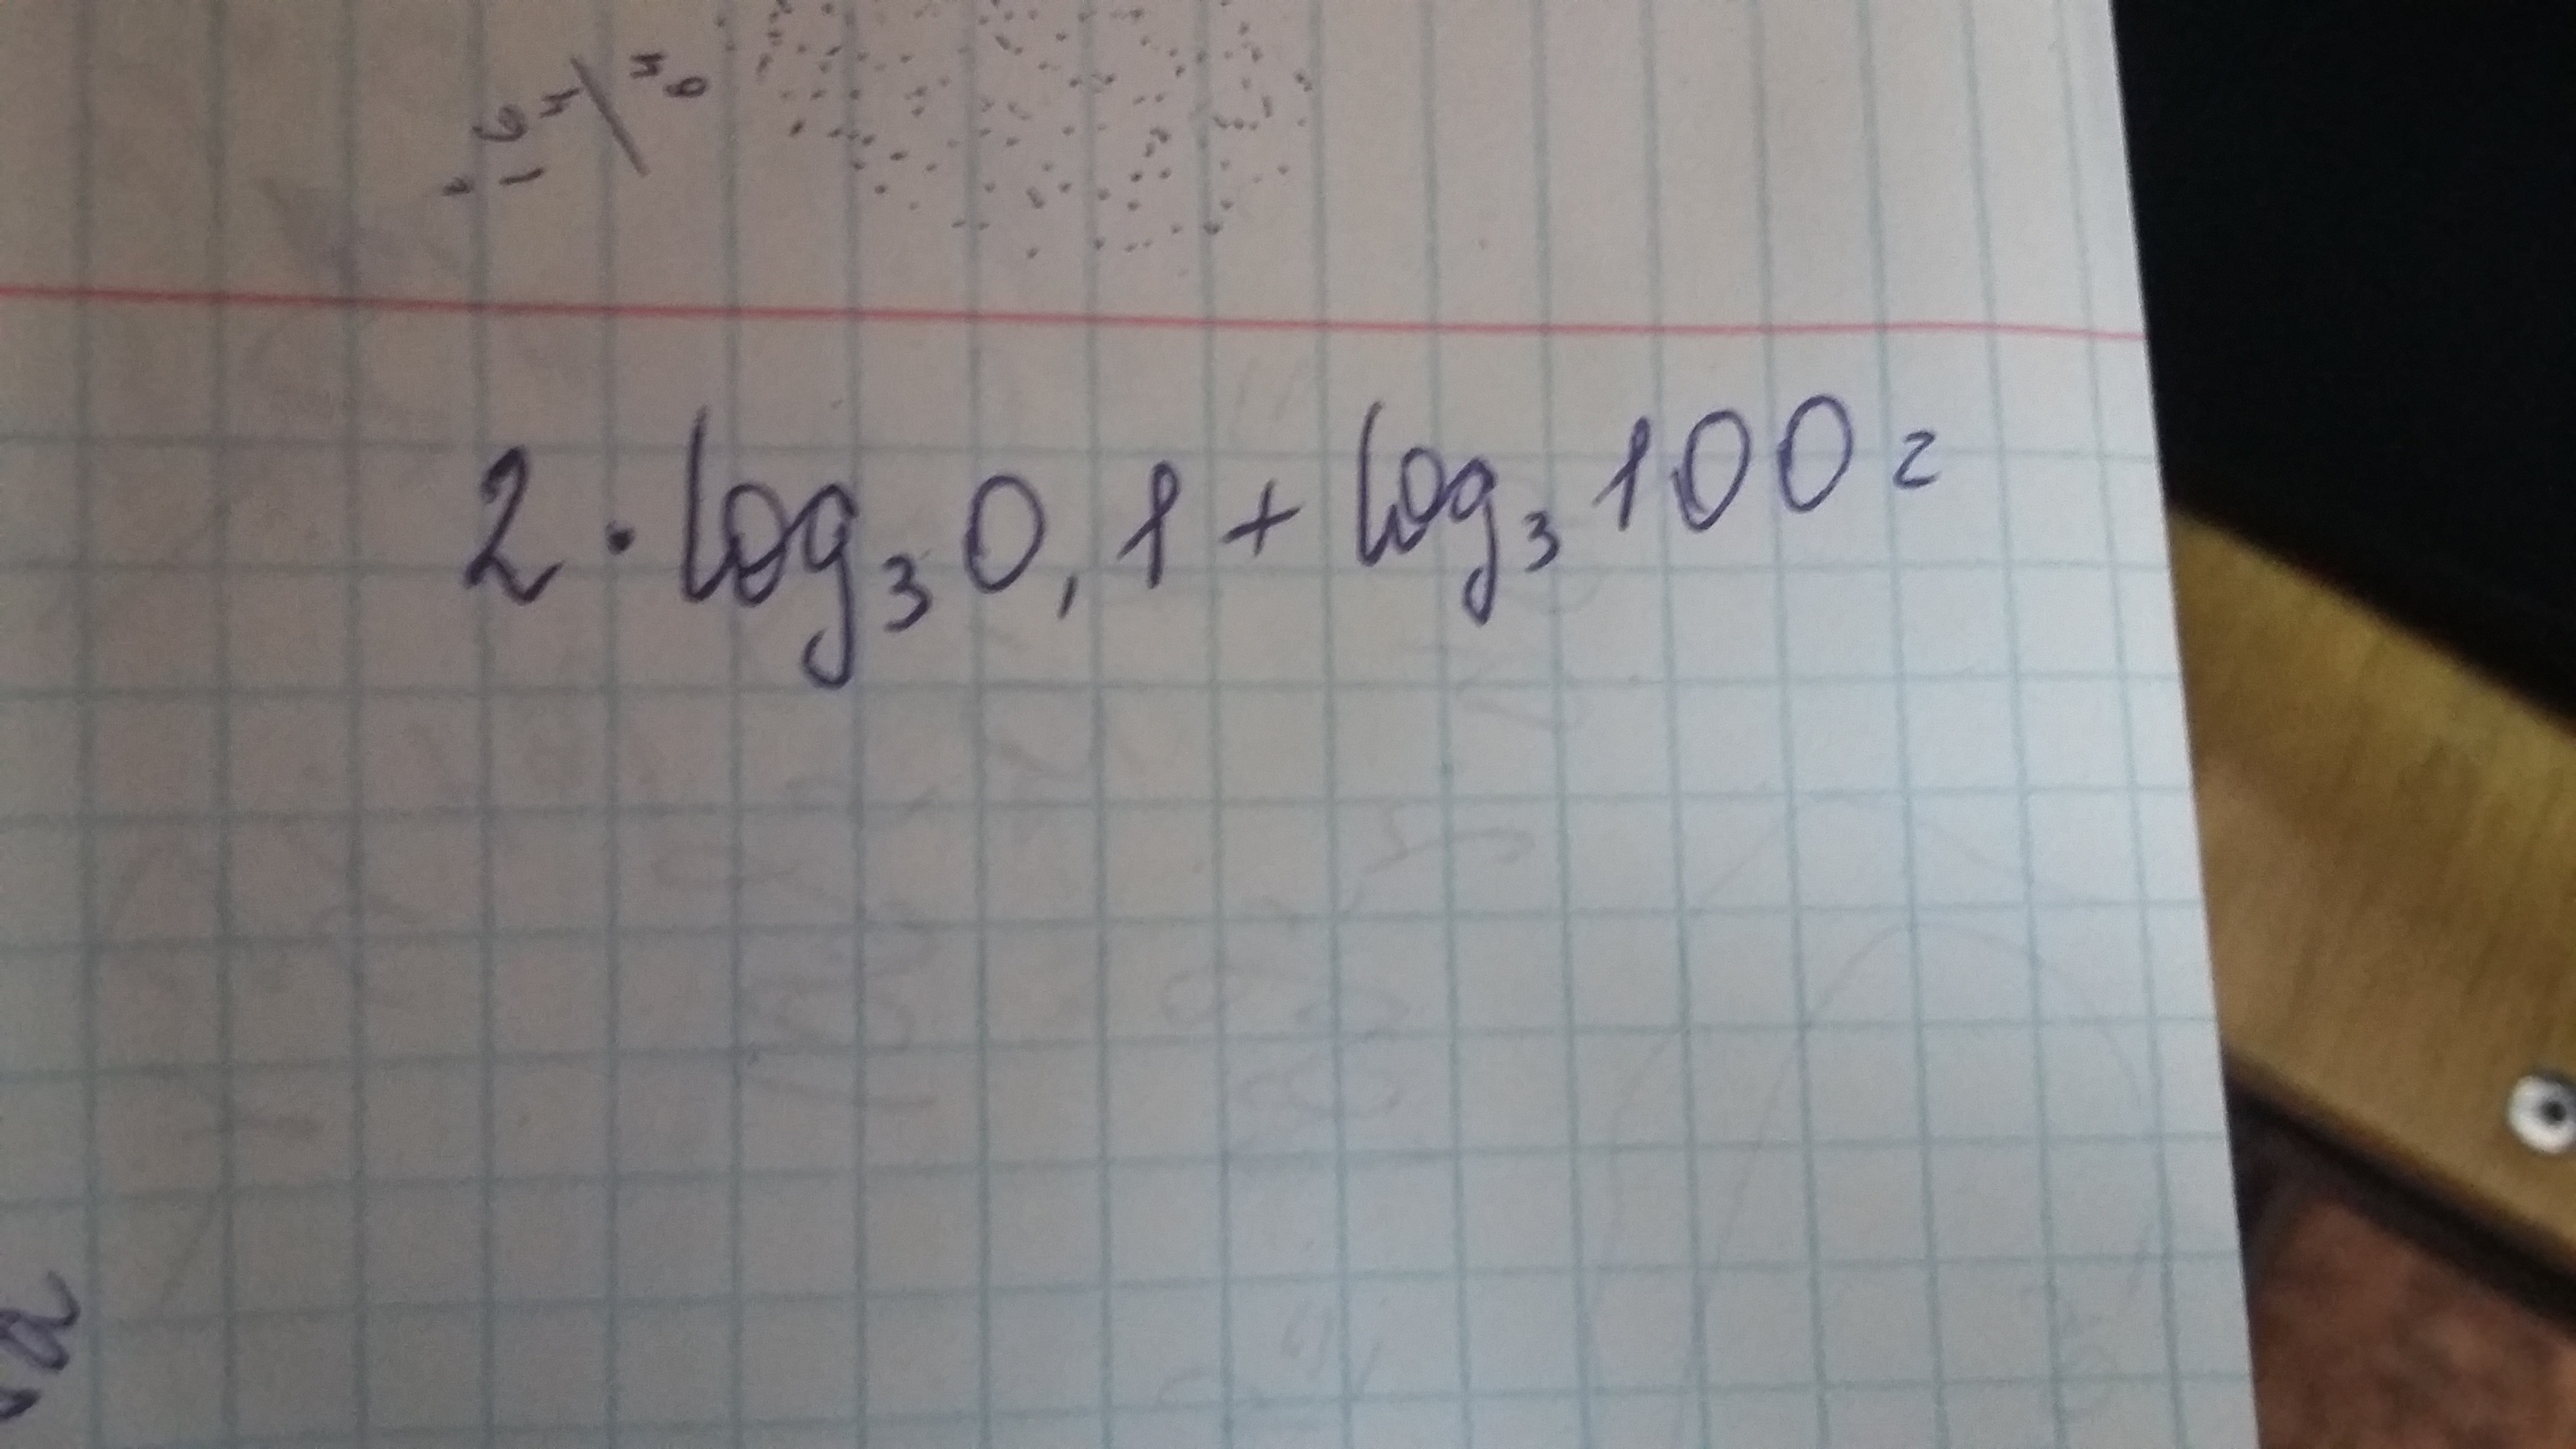 2 · log₃ 0,1 + log₃ 100 =